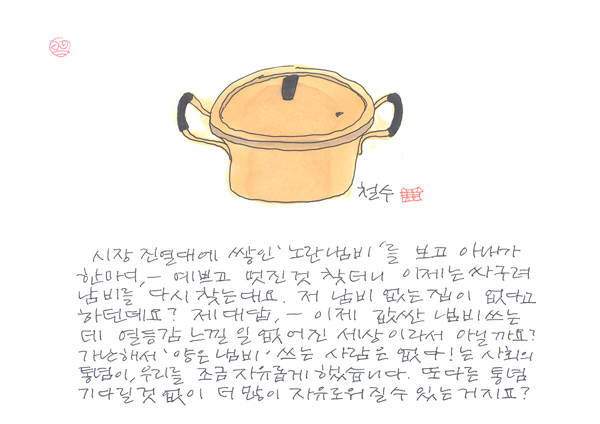 철수
시장 진열대에 쌓인 '노란냄비'를 보고 아내가
한마디,— 예쁘고 멋진것 찾더니 이제는 싸구려
냄비를 다시 찾는대요. 저 냄비 없는집이 없다고
하던데요? 제 대답,— 이제 값싼 냄비쓰는
데 열등감 느낄 일 없어진 세상이라서 아닐까요?
가난해서 '양은냄비' 쓰는 사람은 없다!는 사회의
통념이, 우리를 조금 자유롭게 했습니다. 또다른 통념
기다릴것 없이 더 많이 자유로워질수 있는거지요?